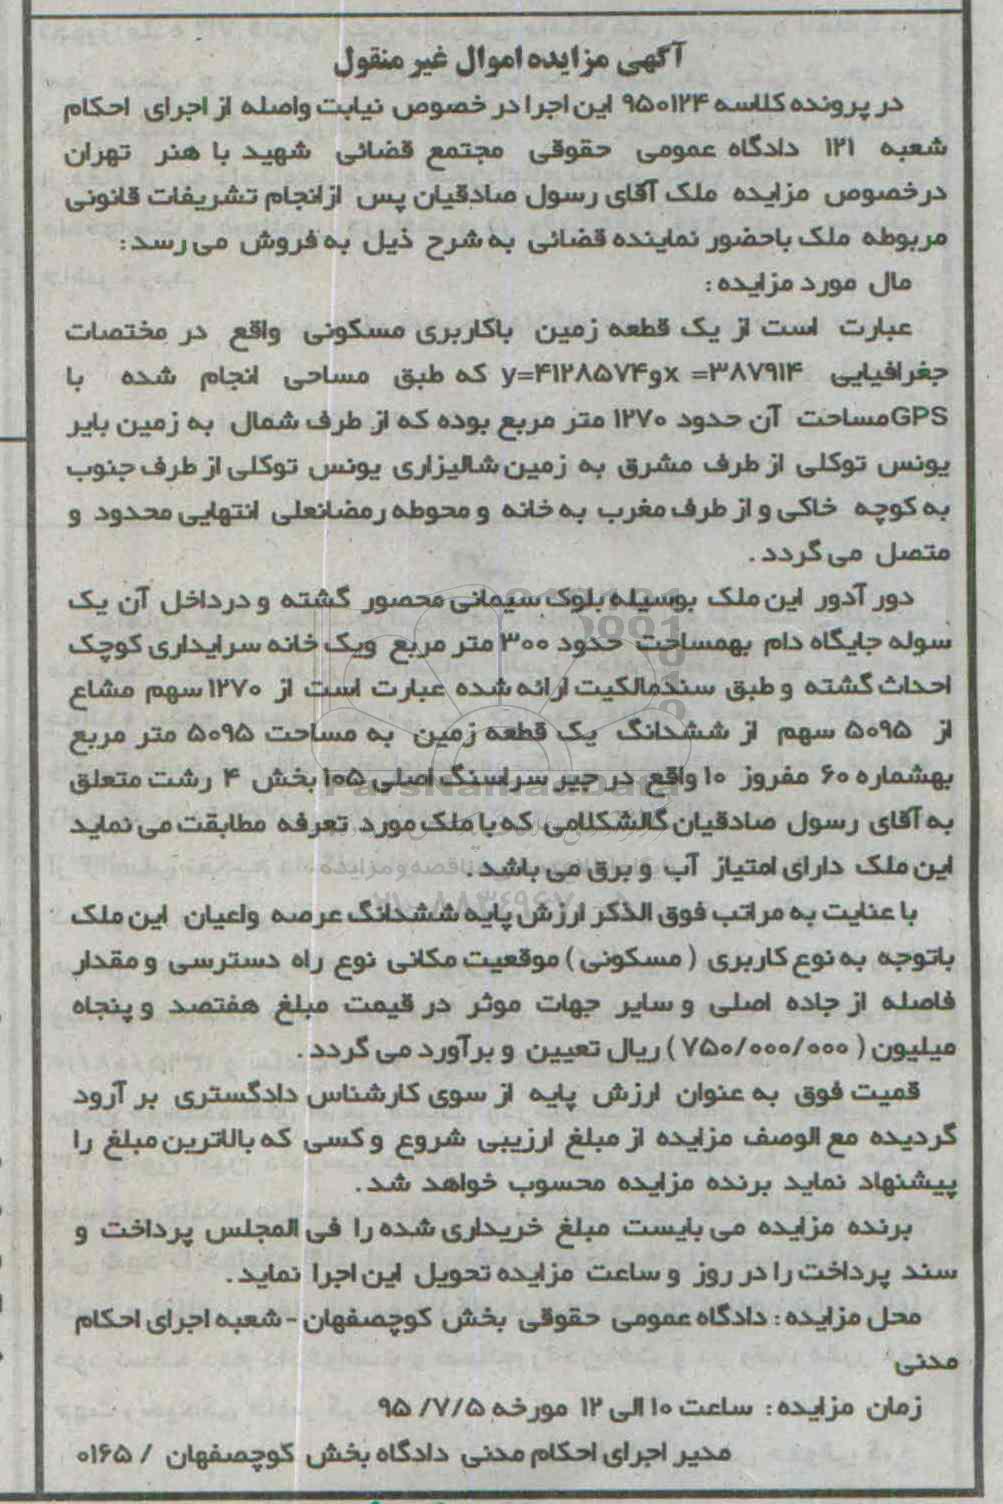 آگهی مزایده اموال غیر منقول
در پرونده کلاسه ۹۵۰۱۲۴ این اجرا در خصوص نیابت واصله از اجرای احکام
شعبه ۱۲۱ دادگاه عمومی حقوقی مجتمع قضائی شهید با هنر تهران
درخصوص مزایده ملک آقای رسول صادقیان پس ازانجام تشریفات قانونی
مربوطه ملک باحضور نماینده قضائی به شرح ذیل به فروش می رسد :
مال مورد مزایده :
عبارت است از یک قطعه زمین باکاربری مسکونی واقع در مختصات
جغرافیایی ۳۸۷۹۱۴= xو۴۱۲۸۵۷۴=y که طبق مساحی انجام شده با
GPSمساحت آن حدود ۱۲۷۰ متر مربع بوده که از طرف شمال به زمین بایر
یونس توکلی از طرف مشرق به زمین شالیزاری یونس توکلی از طرف جنوب
به کوچه خاکی و از طرف مغرب به خانه و محوطه رمضانعلی انتهایی محدود و
متصل می گردد .
دور آدور این ملک بوسیله بلوک سیمانی محصور گشته و درداخل آن یک
سوله جایگاه دام بهمساحت حدود ۳۰۰ متر مربع ویک خانه سرایداری کوچک
احداث گشته و طبق سندمالکیت ارائه شده عبارت است از ۱۲۷۰ سهم مشاع
از ۵۰۹۵ سهم از ششدانگ یک قطعه زمین به مساحت ۵۰۹۵ متر مربع
بهشماره ۶۰ مفروز ۱۰ واقع در جیر سراسنگ اصلی ۱۰۵ بخش ۴ رشت متعلق
به آقای رسول صادقیان گالشکلامی که با ملک مورد تعرفه مطابقت می نماید
این ملک دارای امتیاز آب و برق می باشد .
با عنایت به مراتب فوق الذکر ارزش پایه ششدانگ عرصه واعیان این ملک
باتوجه به نوع کاربری ( مسکونی ) موقعیت مکانی نوع راه دسترسی و مقدار
فاصله از جاده اصلی و سایر جهات موثر در قیمت مبلغ هفتصد و پنجاه
میلیون ( ۷۵۰/۰۰۰/۰۰۰ ) ریال تعیین و برآورد می گردد .
قمیت فوق به عنوان ارزش پایه از سوی کارشناس دادگستری بر آرود
گردیده مع الوصف مزایده از مبلغ ارزیبی شروع و کسی که بالاترین مبلغ را
پیشنهاد نماید برنده مزایده محسوب خواهد شد .
برنده مزایده می بایست مبلغ خریداری شده را فی المجلس پرداخت و
سند پرداخت را در روز و ساعت مزایده تحویل این اجرا نماید .
محل مزایده : دادگاه عمومی حقوقی بخش کوچصفهان - شعبه اجرای احکام
مدنی
زمان مزایده : ساعت ۱۰ الی ۱۲ مورخه ۹۵ /۷/۵
مدیر اجرای احکام مدنی دادگاه بخش کوچصفهان / ۰۱۶۵